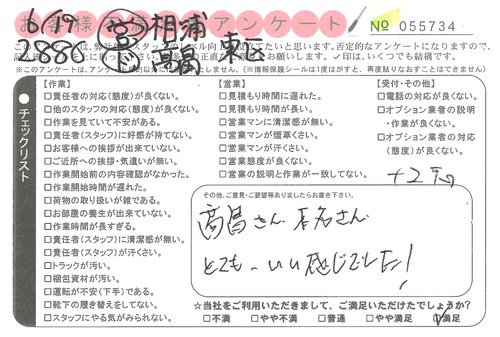 6/19 営 相浦
お客様 アンケート
No 055734
※このアンケートは、
(※情報保護シールは1度はがすと、再度貼りなおすことはできません)
チェックリスト
【作業】
□責任者の対応(態度)が良くない。
□他のスタッフの対応(態度)が良くない。
□作業を見ていて不安がある。
□責任者(スタッフ)に好感が持てない。
□お客様への挨拶が出来ていない。
□ご近所への挨拶・気遣いが無い。
□作業開始前の内容確認がなかった。
□作業開始時間が遅れた。
□荷物の取り扱いが雑である。
□お部屋の養生が出来ていない。
□作業時間が長すぎる。
□責任者(スタッフ)に清潔感が無い。
□責任者(スタッフ)が汗くさい。
□トラックが汚い。
□梱包資材が汚い。
□運転が不安(下手)である。
□靴下の履き替えをしてない。
□スタッフにやる気がみられない。
【営業】
□見積もり時間に遅れた。
□見積もり時間が長い。
□営業マンに清潔感が無い。
□営業マンが煙草くさい。
□営業マンが汗くさい。
□営業態度が良くない。
□営業の説明と作業が一致してない。
【受付・その他】
□電話の対応が良くない。
□オプション業者の説明
・作業が良くない。
□オプション業者の対応
(態度)が良くない。
その他、ご意見・ご要望等ありましたらお書き下さい。
さん さん
とても いい感じでした!
☆当社をご利用いただきまして、ご満足いただけたでしょうか?
□不満 □やや不満 □普通 □やや満足 □満足